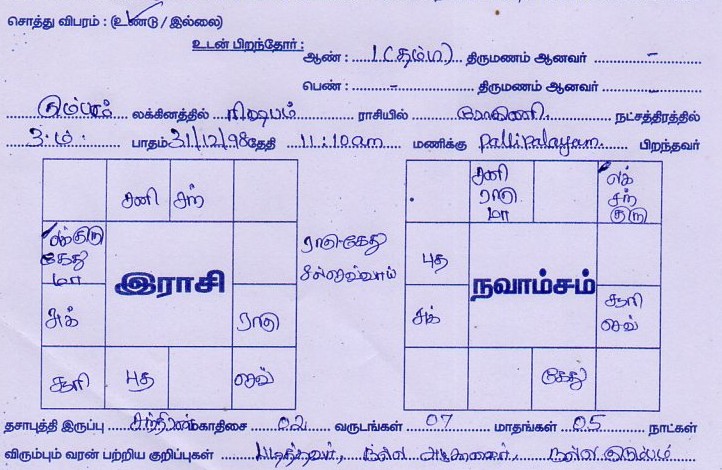 சொத்து விபரம் : (உண்டு / இல்லை)
உடன் பிறந்தோர் : ஆண் : 1 (தம்பி) திருமணம் ஆனவர் -
பெண் : - திருமணம் ஆனவர் -
கும்பம் லக்கினத்தில் ரிஷபம் ராசியில் ரோகிணி நட்சத்திரத்தில்
3-ம் பாதம் 31/12/98 தேதி 11:10 am மணிக்கு Pallipalayam பிறந்தவர்
சனி சந்
லக் குரு கேது மா
இராசி
சுக் ராகு
சூரி புத செவ்
ராகு-கேது
செவ்வாய்
சனி ராகு மா லக் சந் குரு
புத
நவாம்சம்
சுக் சூரி செவ்
கேது
தசாபுத்தி இருப்பு சந்திரன் மகாதிசை 02 வருடங்கள் 07 மாதங்கள் 05 நாட்கள்
விரும்பும் வரன் பற்றிய குறிப்புகள் படித்தவர், நல்ல நல்ல குடும்பம்